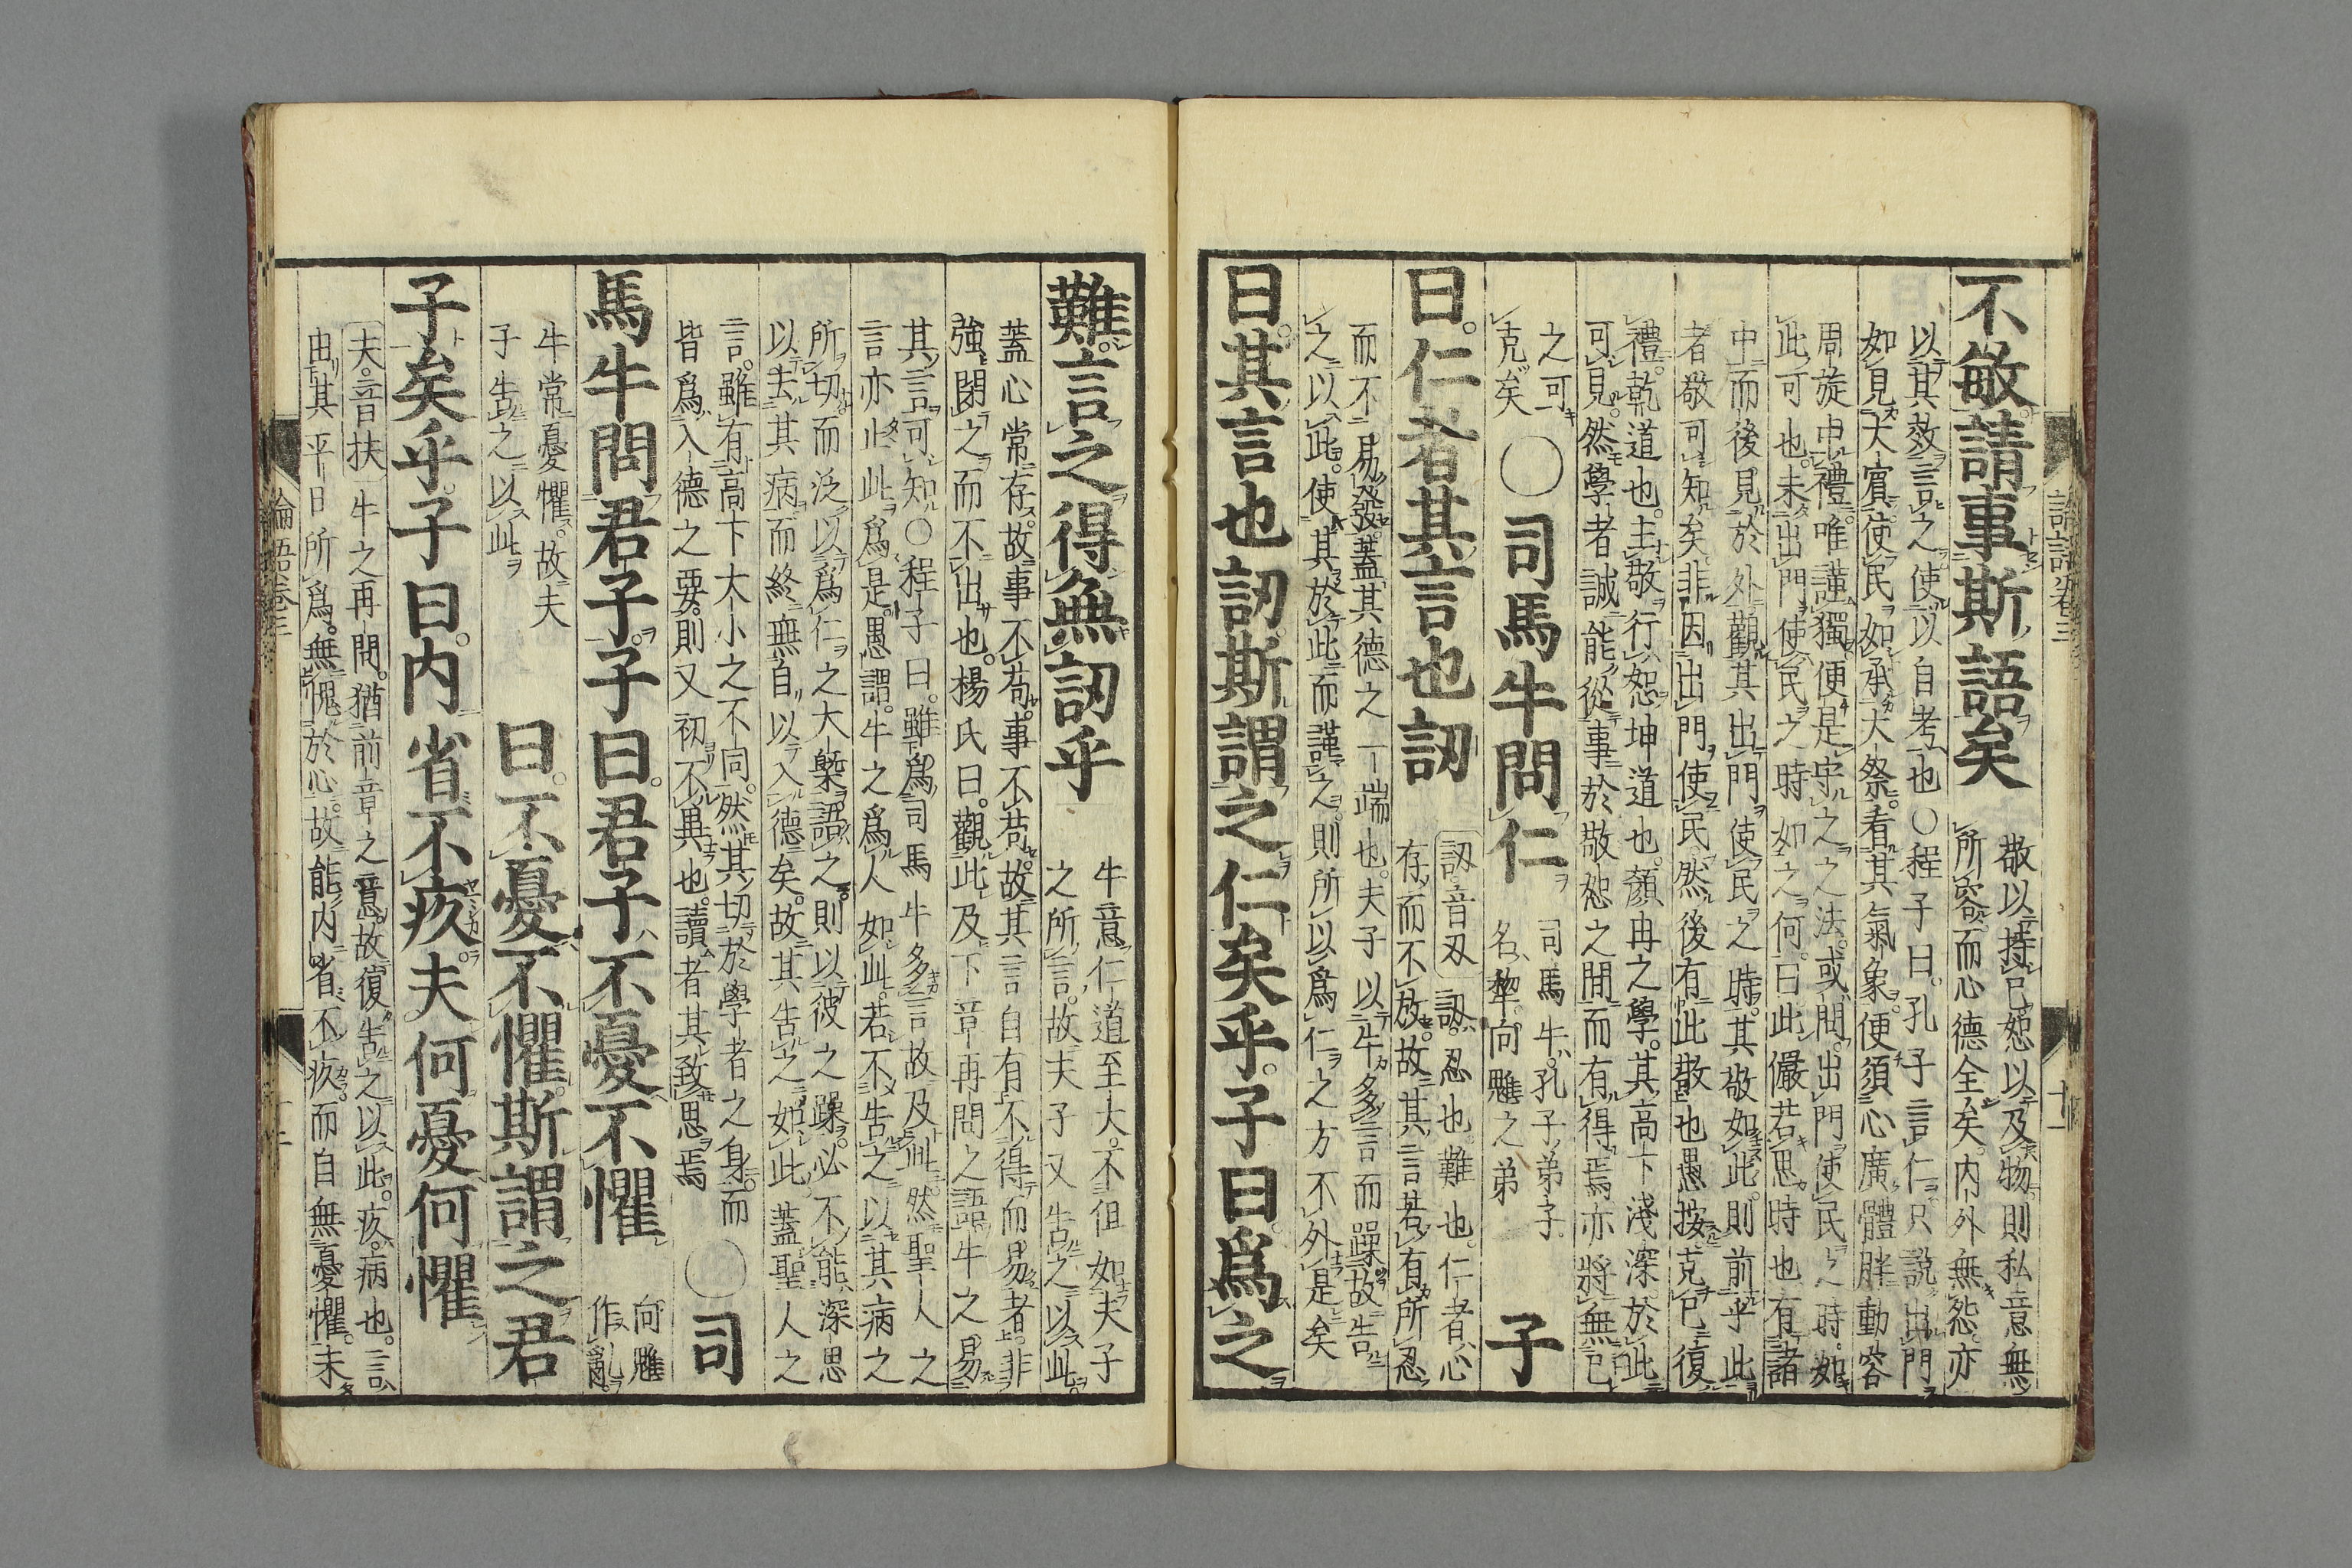 不敏請事斯語矣
敬以持己恕以及物則私意無
所容而心德全矣内外無怨亦
以其效言之使以自考也○程子曰孔子言仁只說出門
如見大賓使民如承大祭看其氣象便須心廣體胖動容
周旋中禮唯謹獨便是守之之法或問出門使民之時如
此可也未出門使民之時如之何曰此儼若思時也有諸
中而後見於外觀其出門使民之時其敬如此則前乎此
者敬可知矣非因出門使民然後有此敬也愚按克己復
禮乾道也主敬行恕坤道也顏冉之學其高下淺深於此
可見然學者誠能從事於敬恕之間而有得焉亦將無己
之可
克矣
○司馬牛問仁
司馬牛孔子弟子
名犂向魋之弟
子
曰仁者其言也訒
訒音刃 訒忍也難也仁者心
存而不放故其言若有所忍
而不易發蓋其德之一端也夫子以牛多言而躁故告
之以此使其於此而謹之則所以爲仁之方不外是矣
曰其言也訒斯謂之仁矣乎子曰爲之
難言之得無訒乎
牛意仁道至大不但如夫子
之所言故夫子又告之以此
蓋心常存故事不苟事不苟故其言自有不得而易者非
強閉之而不出也楊氏曰觀此及下章再問之語牛之易
其言可知○程子曰雖爲司馬牛多言故及此然聖人之
言亦止此爲是愚謂牛之爲人如此若不告之以其病之
所切而泛以爲仁之大槩語之則以彼之躁必不能深思
以去其病而終無自以入德矣故其告之如此蓋聖人之
言雖有高下大小之不同然其切於學者之身而
皆爲入德之要則又初不異也讀者其致思焉
○司
馬牛問君子子曰君子不憂不懼
向魋
作亂
牛常憂懼故夫
子告之以此
曰不憂不懼斯謂之君
子矣乎子曰内省不疚夫何憂何懼
夫音扶 牛之再問猶前章之意故復告之以此疚病也言
由其平日所爲無愧於心故能内省不疚而自無憂懼未
論語卷三
十一
論語卷三